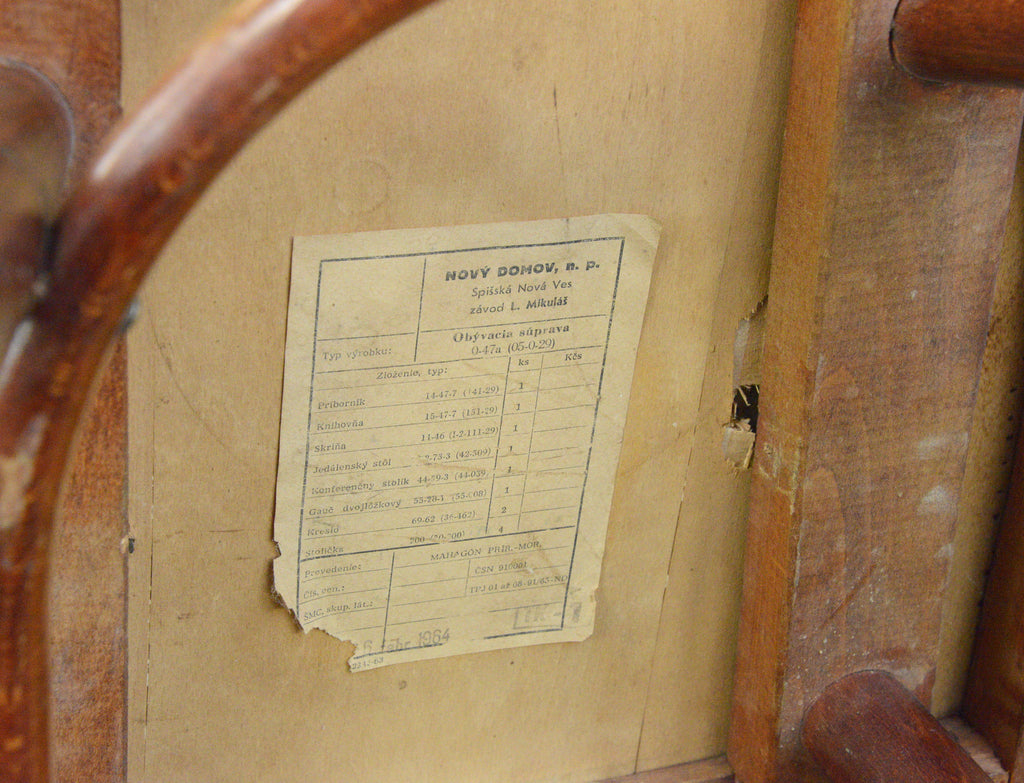 NOVÝ DOMOV, n. p.
Spišská Nová Ves
závod L. Mikuláš
Typ výrobku: Obývacia súprava
0-47a (05-0-29)
Zloženie, typ: ks Kčs
Príborník 14-47-7 1
Knihovňa 15-47-7 (151-29) 1
Skriňa 11-46 (1-2-111-29) 1
Jedálenský stôl (42-309) 1
Konferenčný stolík 44-59-3 (44-059) 1
Gauč dvojlôžkový 55-28-1 (55-008) 1
Kreslo 69-62 (36-462) 2
Stolička 200 4
Prevedenie: MAHAGON PRÍR.-MOR.
Čís. cen.: ČSN 910001
ŠMC, skup. lát.: TPJ 01 až 08-91/63-ND
6. febr. 1964